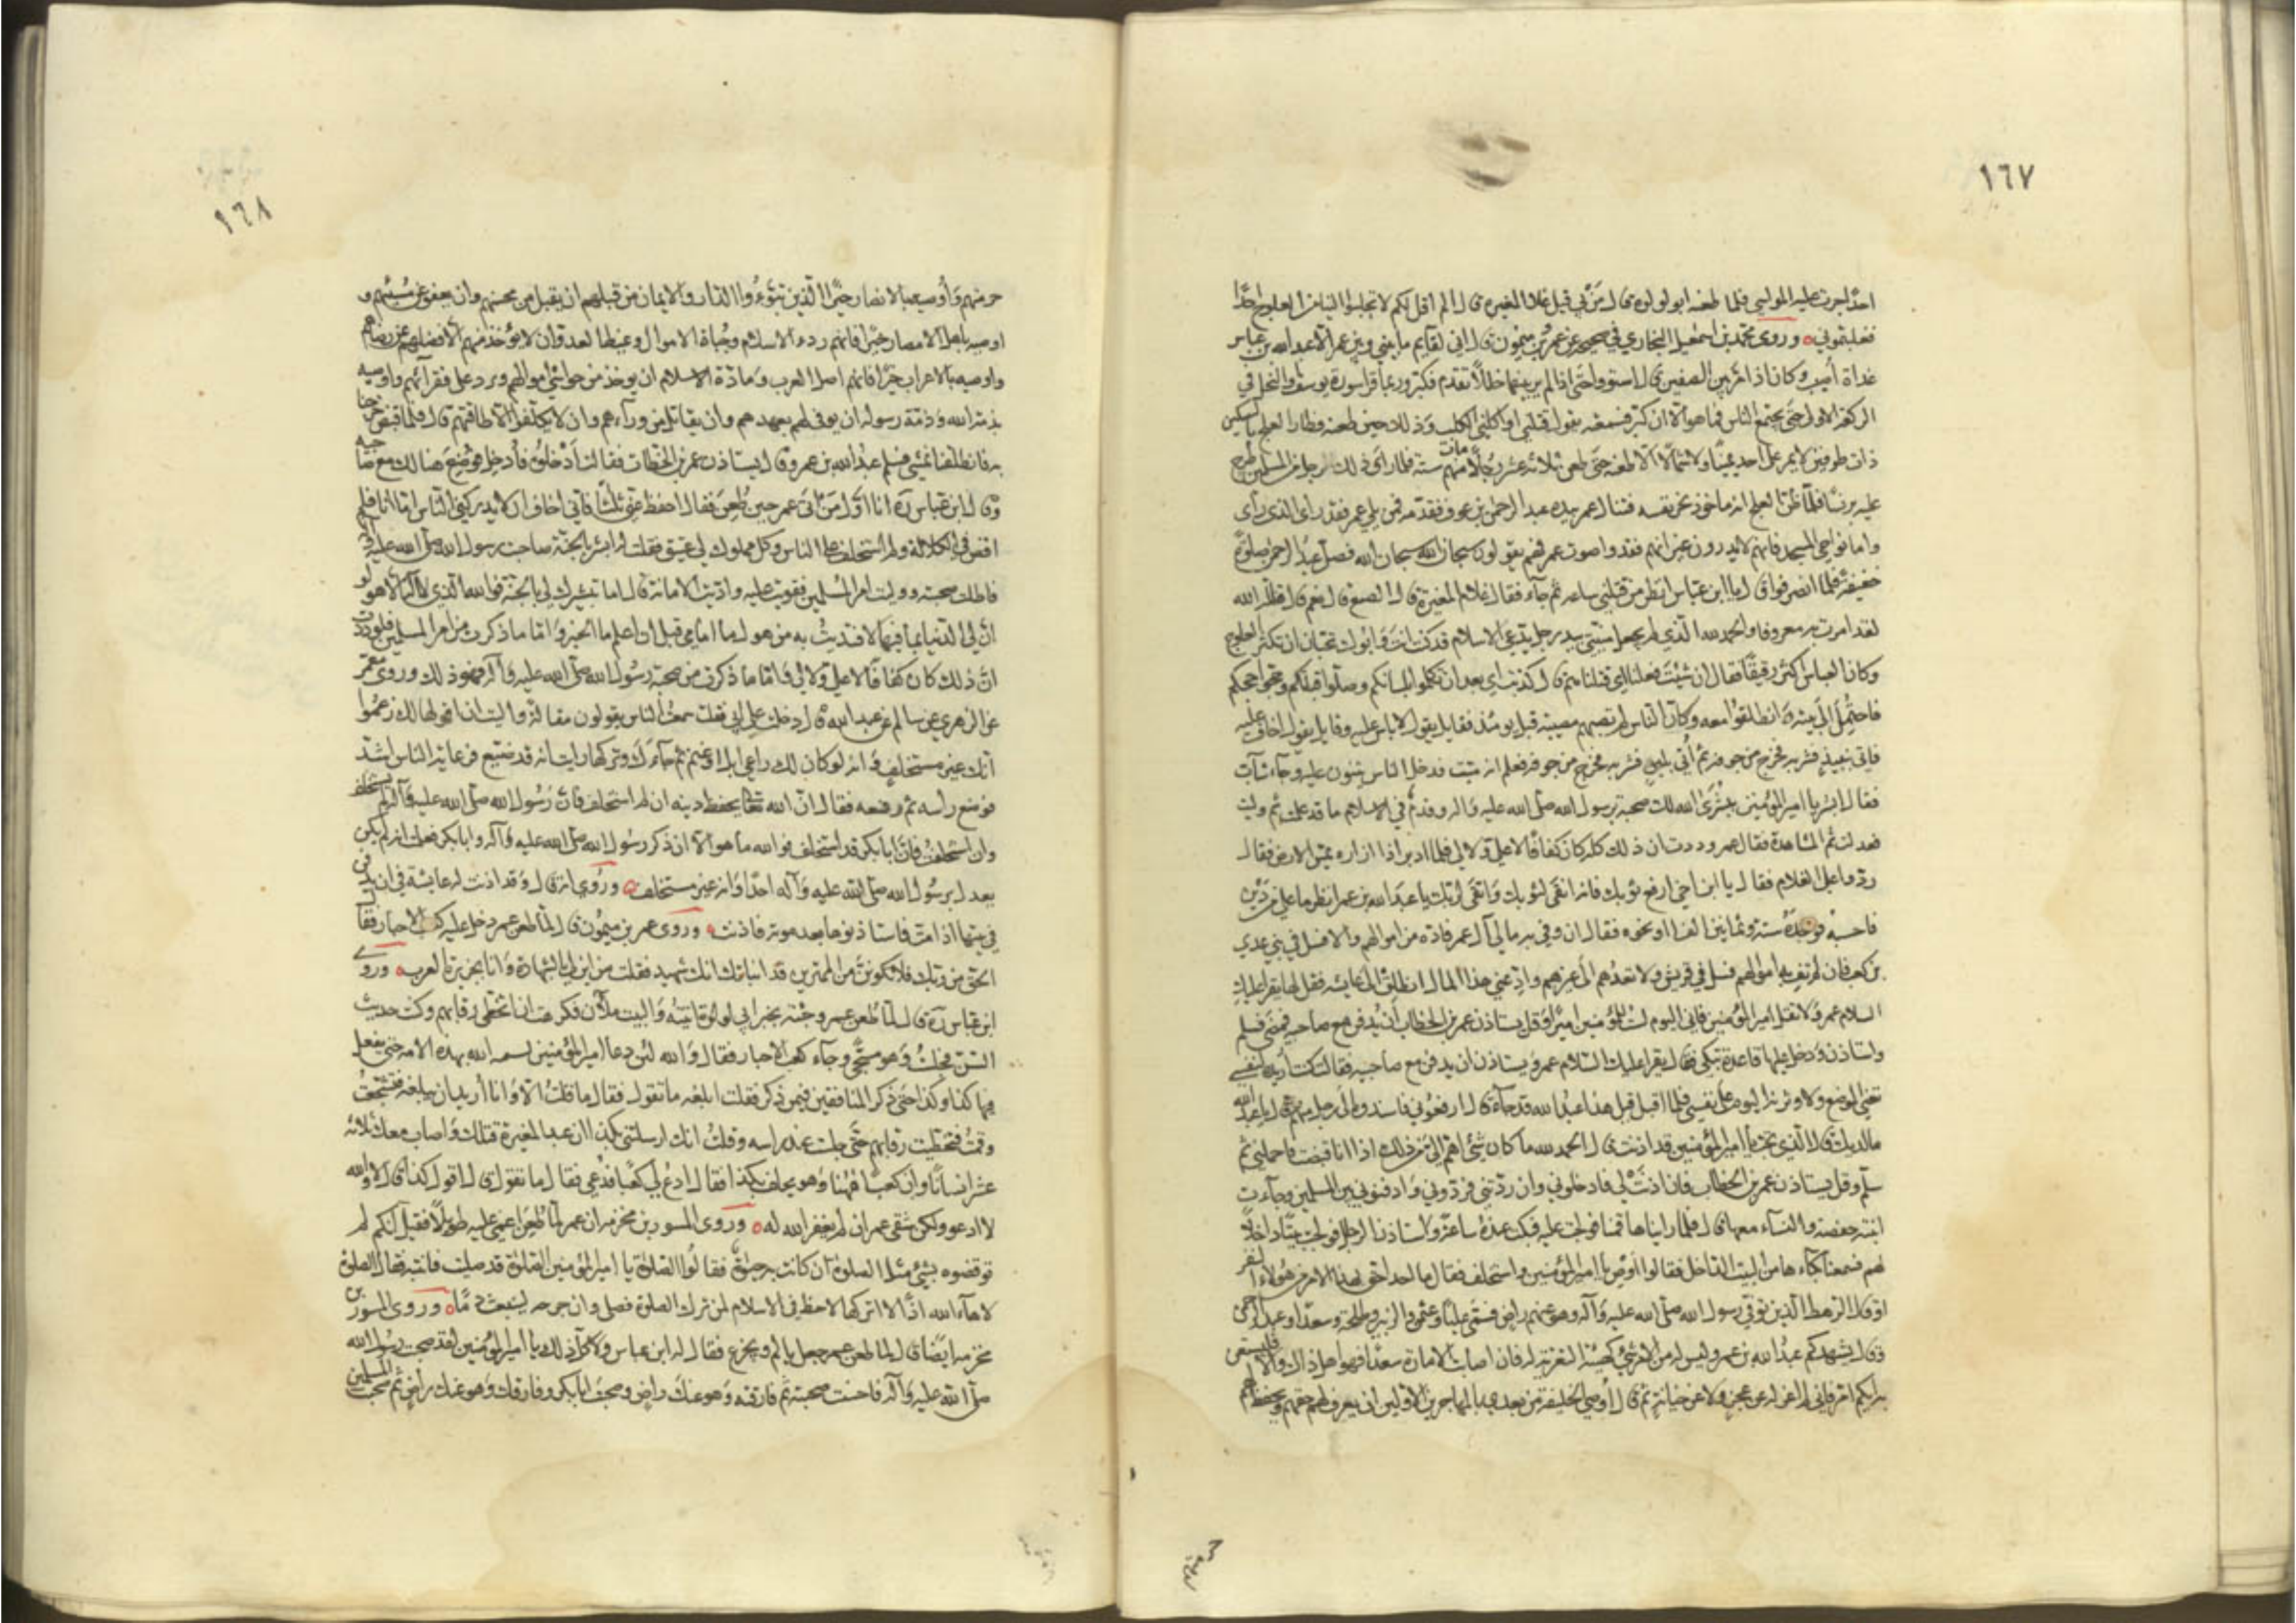 ١٦٧
احدًا جرت عليه المواسي فلما طعنه ابو لولوه قال من بي قيل غلام المغيرة قال الم اقل لكم لا تجلبوا الينا من العلوج احدًا
فغلبتموني ه وروى محمد بن اسمعيل البخاري في صحيحه عن عمرو بن ميمون قال اني لقايم ما بيني وبين عمر الا عبد الله بن عباس
غداة اصيب وكان اذا مر بين الصفين قال استووا حتى اذا لم ير بينهما خللا تقدم فكبر وربما قرا سورة يوسف والنحل في
الركعة الاولى حتى يجتمع الناس فما هو الا ان كبر فسمعته يقول قتلني او اكلني الكلب وذلك حين طعنه وطار العلج بالسكين
ذات طرفين لا يمر على احد يمينًا ولا شمالًا الا طعنه حتى طعن ثلاثة عشر رجلًا مات منهم ستة فلما راى ذلك رجل من المسلمين طرح
عليه برنسًا فلما ظن العلج انه ماخوذ نحر نفسه فتناول عمر بيده عبد الرحمن بن عوف فقدمه فمن يلي عمر فقد راى الذي راى
واما نواحي المسجد فانهم لا يدرون غير انهم فقدوا صوت عمر فهم يقولون سبحان الله سبحان الله فصلى عبد الرحمن صلوة
خفيفة فلما انصرفوا قال يا ابن عباس انظر من قتلني ساعة ثم جاء فقال غلام المغيرة قال الصنع قال نعم قال قاتله الله
لقد امرت به معروفا والحمد لله الذي لم يجعل منيتي بيد رجل يدعي الاسلام قد كنت انت وابوك تحبان ان تكثر العلوج
وكان العباس اكثر رقيقًا فقال ان شئت فعلنا اي قتلناهم قال كذبت اي بعد ان تكلموا بلسانكم وصلوا قبلتكم وحجوا حجكم
فاحتمل الى بيته وانطلقوا معه وكان الناس لم تصبهم مصيبة قبل يومئذ فقايل يقول لا باس عليه وقايل يقول اخاف عليه
فاتي بنبيذ فشربه فخرج من جوفه ثم اتي بلبن فشربه فخرج من جوفه فعلم انه ميت فدخل الناس يثنون عليه وجاء شاب
فقال ابشر يا امير المؤمنين ببشرى الله لك صحبة برسول الله صلى الله عليه واله وقدم في الاسلام ما قد علمت ثم وليت
فعدلت ثم الشاهدة فقال عمر وددت ان ذلك كله كان كفافًا لا علي ولا لي فلما ادبر اذا ازاره يمس الارض فقال
ردوا على الغلام فقال يا ابن اخي ارفع ثوبك فانه انقى لثوبك واتقى لربك يا عبد الله بن عمر انظر ما علي من دين
فاحسبه فوجده ستة وثمانين الفا او نحوه فقال ان وفى به مال آل عمر فاده من اموالهم والا فسل في بني عدي
بن كعب فان لم تف به اموالهم فسل في قريش ولا تعدهم الى غيرهم واد عني هذا المال انطلق الى عايشه فقل لها يقرا عليك
السلام عمر ولا تقل امير المؤمنين فاني اليوم لست للمؤمنين اميرًا وقل يستاذن عمر بن الخطاب ان يدفن مع صاحبيه فمضى فسلم
واستاذن ودخل عليها قاعدة تبكي فقال يقرا عليك السلام عمر ويستاذن ان يدفن مع صاحبيه فقالت كنت اريده لنفسي
تعني الموضع ولاوثرنه اليوم على نفسي فلما اقبل قيل هذا عبد الله قد جاء قال ارفعوني فاسنده الى رجل منهم قال يا عبد الله
ما لديك قال الذي تحب يا امير المؤمنين قد اذنت قال الحمد لله ما كان شيء اهم الي من ذلك اذا انا قبضت فاحملني ثم
سلم وقل يستاذن عمر بن الخطاب فان اذنت لي فادخلوني وان ردتني فردوني وادفنوني بين المسلمين وجاءت
ابنته حفصة والنساء معها قال فلما رايناها قمنا فولجت عليه فبكت عنده ساعة واستاذن الرجال فولجت بيتًا داخلًا
لهم فسمعنا بكاءها من البيت الداخل فقالوا اوص يا امير المؤمنين واستخلف فقال ما احد احق بهذا الامر من هؤلاء النفر
او قال الرهط الذين توفي رسول الله صلى الله عليه واله وهو عنهم راض فسمى عليًا وعثمن والزبير وطلحة وسعدًا وعبد الرحمن
وقال يشهدكم عبد الله بن عمر وليس له من الامر شيء كهيئة التعزية له فان اصاب الامارة سعدًا فهو اهل ذاك والا فليستعن
به ايكم امر فاني لم اعزله عن عجز ولا عن خيانة ثم قال اوصي الخليفة من بعدي بالمهاجرين الاولين ان يعرف لهم حقهم ويحفظ لهم
حرمتهم
١٦٨
حرمتهم واوصيه بالانصار خيرًا الذين تبوءوا الدار والايمان من قبلهم ان يقبل من محسنهم وان يعفو عن مسيئهم و
اوصيه باهل الامصار خيرًا فانهم ردء الاسلام وجباة الاموال وغيظ العدو وان لا يؤخذ منهم الا فضلهم عن رضاهم
واوصيه بالاعراب خيرًا فانهم اصل العرب ومادة الاسلام ان يوخذ من حواشي اموالهم ويرد على فقرائهم واوصيه
بذمة الله وذمة رسوله ان يوفى لهم بعهدهم وان يقاتل من ورآءهم وان لا يكلفوا الا طاقتهم قال فلما قبض خرجنا
به فانطلقنا نمشي فسلم عبد الله بن عمر وقال يستاذن عمر بن الخطاب فقالت ادخلوه فادخل موضع هنالك مع صاحبيه
وقال ابن عباس ره انا اول من اتى عمر حين طعن فقال احفظ عني ثلثًا فاني اخاف ان لا يدركني الناس اما انا فلم
اقض في الكلالة ولم استخلف على الناس وكل مملوك لي عتيق فقلت له ابشر بالجنة صاحبت رسول الله صلى الله عليه واله
فاطلت صحبته ووليت امر المسلمين فقويت عليه واديت الامانة قال اما تبشيرك لي بالجنة فوالله الذي لا اله الا هو لو
ان لي الدنيا بما فيها لافتديت به من هول ما امامي قبل ان اعلم ما الخبر واما ما ذكرت من امر المسلمين فلوددت
ان ذلك كان كفافًا لا علي ولا لي واما ما ذكرت من صحبة رسول الله صلى الله عليه وآله فهو ذلك وروى معمر
عن الزهري عن سالم عن عبد الله قال دخلت على ابي فقلت سمعت الناس يقولون مقالة واليت ان اقولها لك زعموا
انك غير مستخلف وانه لو كان لك راعي ابل او غنم ثم جاءك وتركها رايت انه قد ضيع فرعاية الناس اشد
فوضع راسه ثم رفعه فقال ان الله تعالى يحفظ دينه ان لم استخلف فان رسول الله صلى الله عليه وآله لم يستخلف
وان استخلفت فان ابا بكر قد استخلف فوالله ما هو الا ان ذكر رسول الله صلى الله عليه وآله وابا بكر فعلمت انه لم يكن
يعدل برسول الله صلى الله عليه وآله احدًا وانه غير مستخلف ه وروي انه قال وقد اذنت له عايشة في ان يدفن
في بيتها اذا مت فاستاذنوها بعد موته فاذنت ه وروى عمر بن ميمون قال لما طعن عمر دخل عليه كعب الاحبار فقال
الحق من ربك فلا تكونن من الممترين قد انباتك انك شهيد فقلت من اين لي بالشهادة وانا بجزيرة العرب ه وروى
ابن عباس ره قال لما طعن عمر وجئته بخبر ابي لولوة اتيته والبيت ملآن فكرهت ان اتخطى رقابهم وكنت حديث
السن فجلست وهو مسجى وجاء كعب الاحبار فقال والله لئن دعا امير المؤمنين ليبقينه الله لهذه الامه حتى يفعل
فيها كذا وكذا حتى ذكر المنافقين فيمن ذكر فقلت ابلغه ما تقول فقال ما قلت الا وانا اريد ان تبلغه فتشجعت
وقمت فتخطيت رقابهم حتى جلست عند راسه وقلت انك ارسلتني بكذا ان عبد المغيرة قتلك واصاب معك ثلاثة
عشر انسانًا وان كعبًا ههنا وهو يحلف بكذا فقال ادع لي كعبًا فدعي فقال ما تقول قال اقول كذا قال لا والله
لا ادعو ولكن شقي عمر ان لم يغفر الله له ه وروى المسور بن مخرمة ان عمر لما طعن اغمي عليه طويلًا فقيل انكم لم
توقضوه بشيء مثل الصلوة ان كانت به حيوة فقالوا الصلوة يا امير المؤمنين الصلوة قد صليت فانتبه فقال الصلوة
لا هآء الله اذًا لا اتركها لاحظ في الاسلام لمن ترك الصلوة فصلى وان جرحه لينبعث دمًا ه وروى المسور بن
مخرمه ايضًا قال لما طعن عمر جعل يالم ويجزع فقال له ابن عباس ولا كل ذلك يا امير المؤمنين لقد صحبت رسول الله
صلى الله عليه وآله فاحسنت صحبته ثم فارقته وهو عنك راض وصحبت ابا بكر وفارقك وهو عنك راض ثم صحبت المسلمين